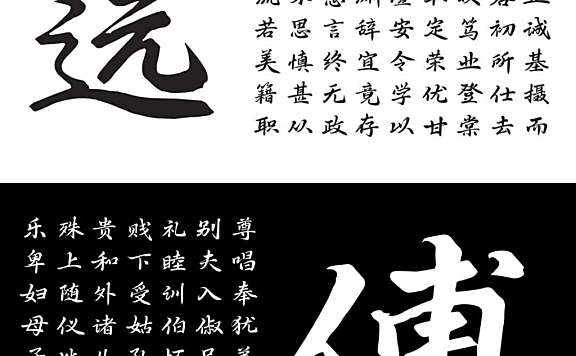 远
若思言辞安定笃初诚
美慎终宜令荣业所基
籍甚无竟学优登仕摄
职从政存以甘棠去而
乐殊贵贱礼别尊
卑上和下睦夫唱
妇随外受训入奉
母仪诸姑伯俶犹